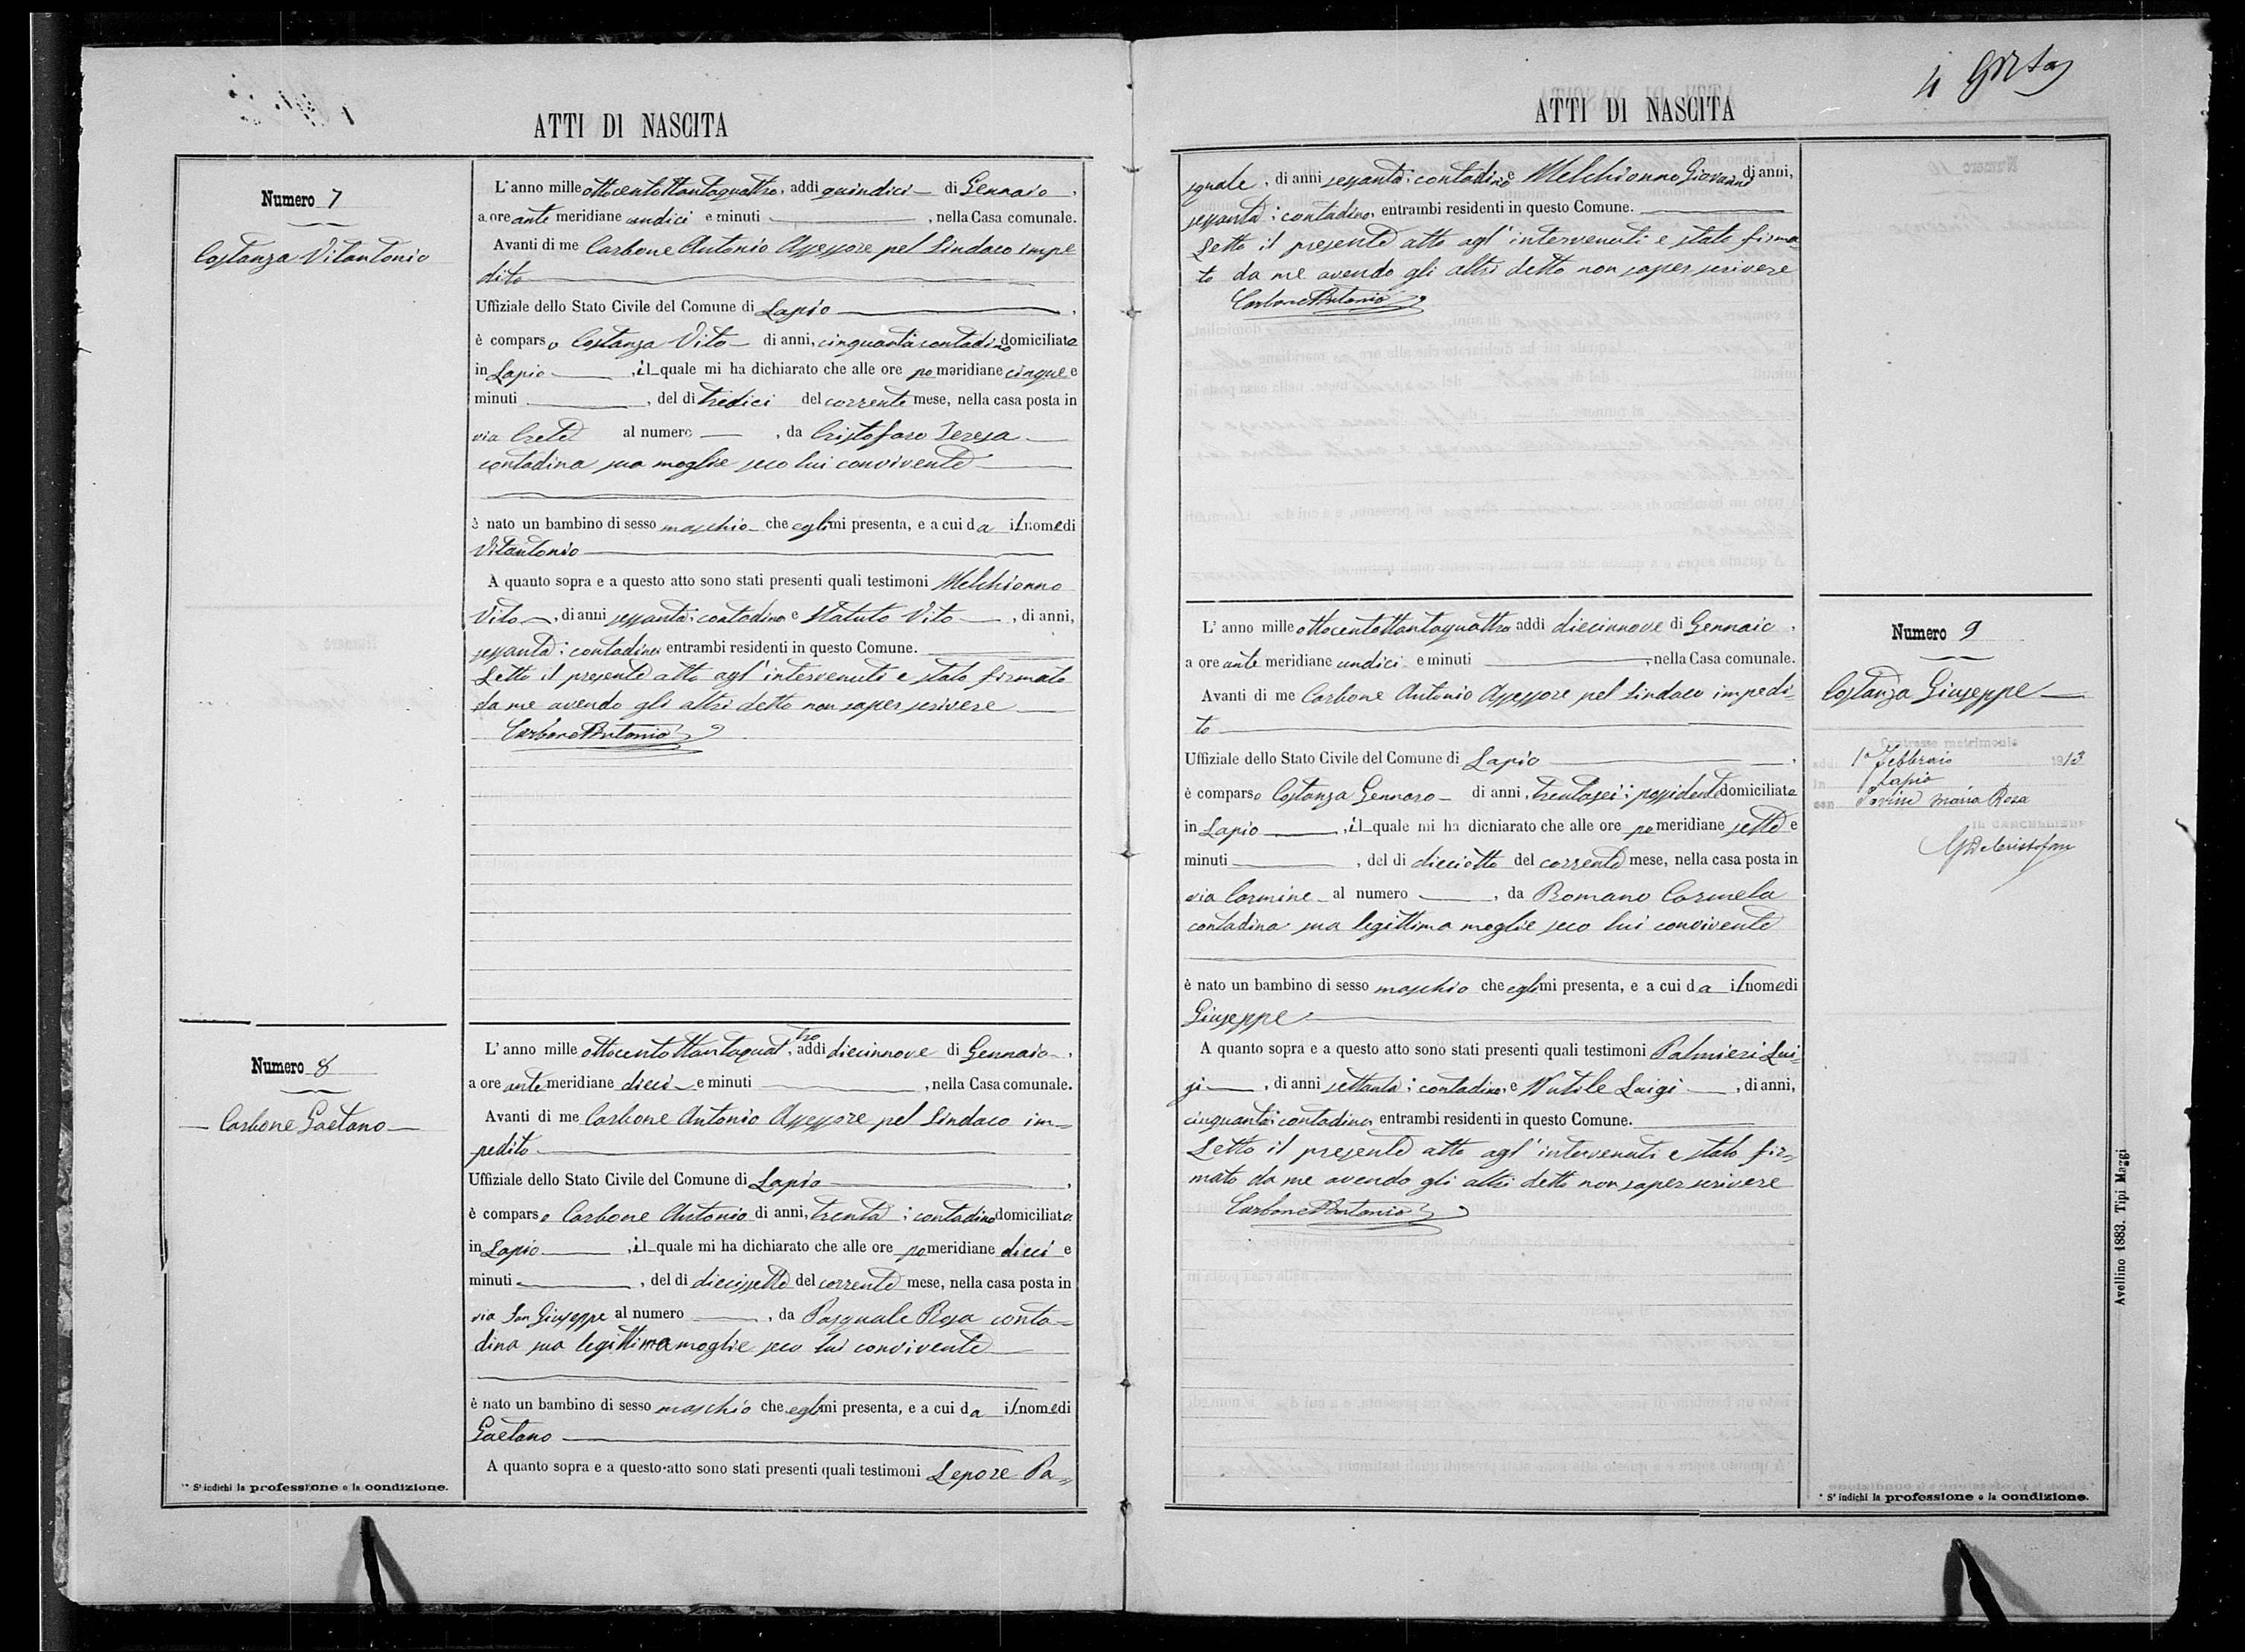 ATTI DI NASCITA
Numero 7
Costanza Vitantonio
L'anno mille ottocentottantaquattro, addi quindici di Gennaio,
a ore ante meridiane undici e minuti , nella Casa comunale.
Avanti di me Carbone Antonio Assessore pel Sindaco impe
dito
Uffiziale dello Stato Civile del Comune di Lapio ,
è comparso Costanza Vito di anni, cinquanta contadino domiciliato
in Lapio , il quale mi ha dichiarato che alle ore pomeridiane cinque e
minuti , del di tredici del corrente mese, nella casa posta in
via Crete al numero , da Cristofaro Teresa
contadina sua moglie seco lui convivente
è nato un bambino di sesso maschio che egli mi presenta, e a cui da il nome di
Vitantonio
A quanto sopra e a questo atto sono stati presenti quali testimoni Melchionno
Vito , di anni sessanta; contadino e Statuto Vito , di anni,
sessanta; contadino, entrambi residenti in questo Comune.
Letto il presente atto agl'intervenuti e stato firmato
da me avendo gli altri detto non saper scrivere
Carbone Antonio
Numero 8
Carbone Gaetano
L'anno mille ottocentottantaquattro, addi diecinnove di Gennaio,
a ore ante meridiane dieci e minuti , nella Casa comunale.
Avanti di me Carbone Antonio Assessore pel Sindaco im=
pedito
Uffiziale dello Stato Civile del Comune di Lapio ,
è comparso Carbone Antonio di anni, trenta; contadino domiciliato
in Lapio , il quale mi ha dichiarato che alle ore pomeridiane dieci e
minuti , del di diecissette del corrente mese, nella casa posta in
via San Giuseppe al numero , da Pasquale Rosa conta=
dina sua legittima moglie seco lui convivente
è nato un bambino di sesso maschio che egli mi presenta, e a cui da il nome di
Gaetano
A quanto sopra e a questo atto sono stati presenti quali testimoni Lepore Pa=
* S'indichi la professione o la condizione.
4
ATTI DI NASCITA
squale, di anni sessanta; contadino e Melchionno Giovanni di anni,
sessanta; contadino, entrambi residenti in questo Comune.
Letto il presente atto agl'intervenuti e stato firma
to da me avendo gli altri detto non saper scrivere
Carbone Antonio
L'anno mille ottocentottantaquattro addi diecinnove di Gennaio,
a ore ante meridiane undici e minuti , nella Casa comunale.
Avanti di me Carbone Antonio Assessore pel Sindaco impedi=
to
Uffiziale dello Stato Civile del Comune di Lapio ,
è comparso Costanza Gennaro di anni, trentasei; possidente domiciliato
in Lapio , il quale mi ha dichiarato che alle ore pomeridiane sette e
minuti , del di dieciotto del corrente mese, nella casa posta in
via Carmine al numero , da Romano Carmela
contadina sua legittima moglie seco lui convivente
è nato un bambino di sesso maschio che egli mi presenta, e a cui da il nome di
Giuseppe
A quanto sopra e a questo atto sono stati presenti quali testimoni Palmieri Lui=
gi , di anni settanta; contadino, e Nutile Luigi , di anni,
cinquanta; contadino, entrambi residenti in questo Comune.
Letto il presente atto agl'intervenuti e stato fir=
mato da me avendo gli altri detto non saper scrivere
Carbone Antonio
Numero 9
Costanza Giuseppe
Contrasse matrimonio
addì 1° Febbraio 1913
in Lapio
con Maria Rosa
IL CANCELLIERE
* S'indichi la professione o la condizione.
Avellino 1883. Tipi Maggi